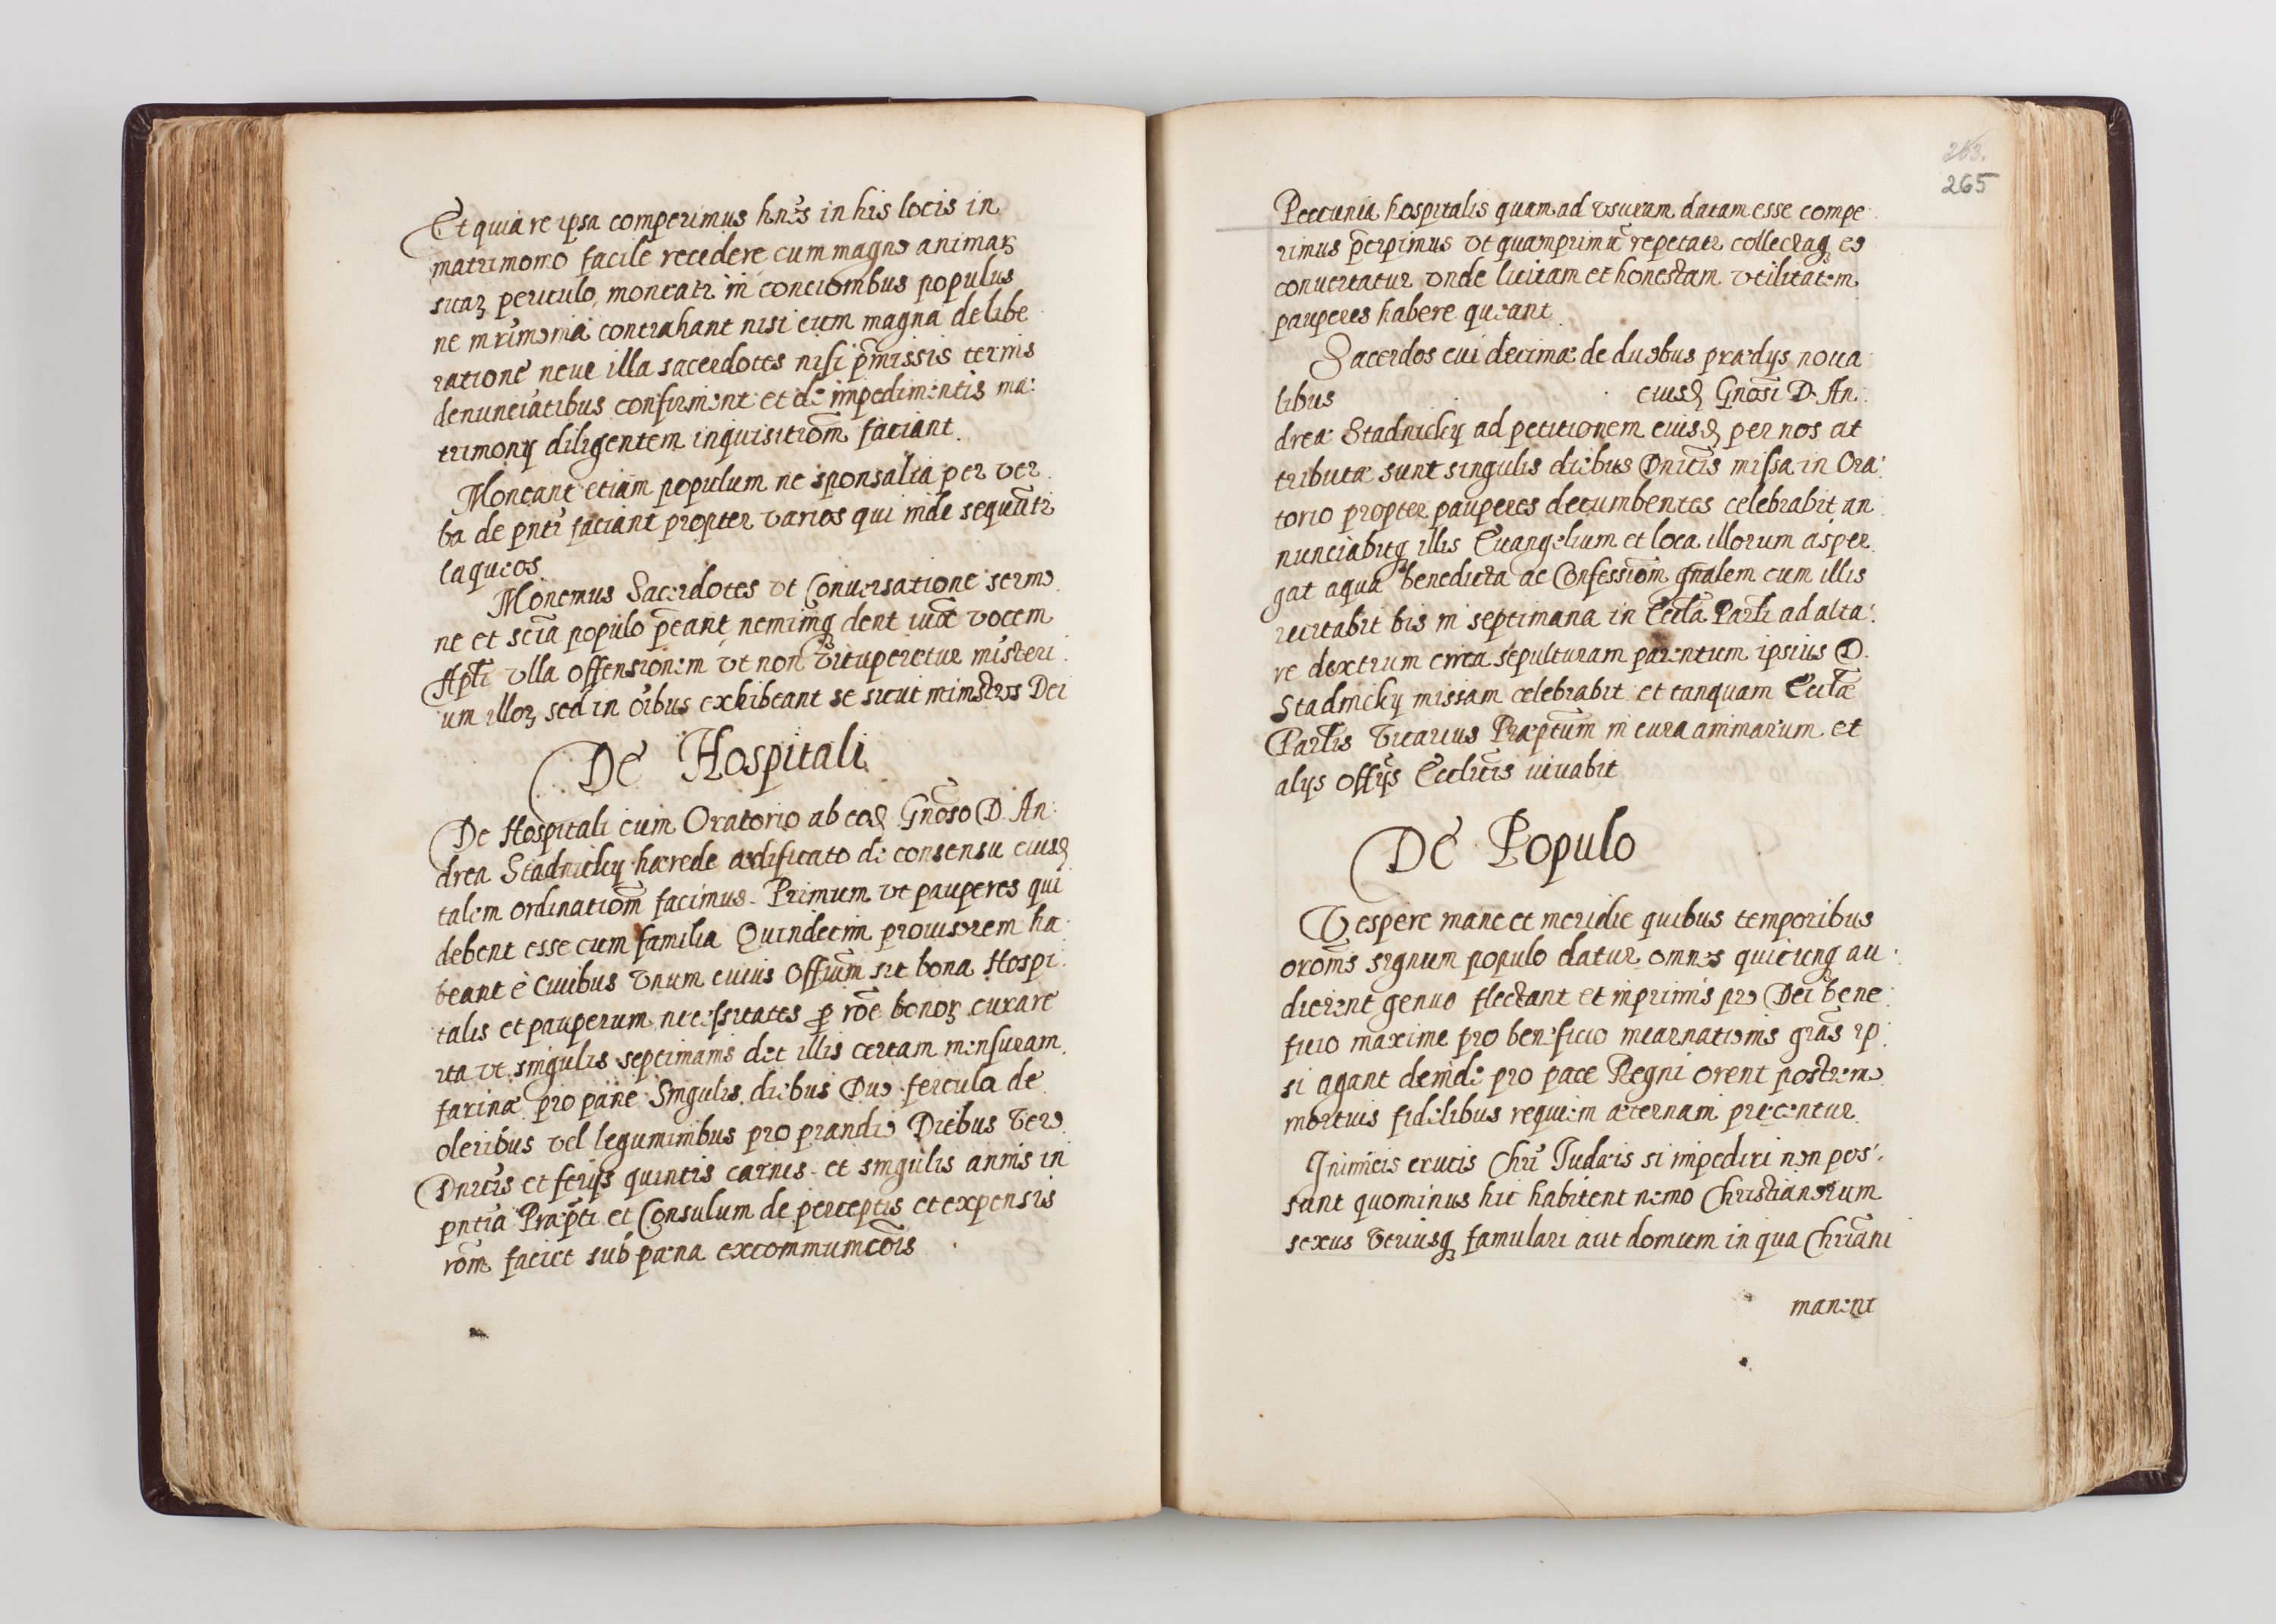 Et quia re ipsa comperimus hn̄es in his locis in
matrimonio facile recedere cum magno animaꝝ
suaꝝ periculo, moneatr in concionibus populus
ne mr̄imonia contrahant nisi cum magna delibe
ratione neue illa sacerdotes nisi p̄missis ternis
denunciatibus confirment et de impedimentis ma:
trimonij diligentem inquisitiom̄ faciant.
Moneant etiam populum ne sponsalia per ver
ba de pn̄ti faciant propter varios qui inde sequūtr
laqueos
Monemus Sacerdotes vt Conuersatione sermo
ne et scīa populo p̄eant neminiq dent iux̄ vocem
Apl̄i vlla offensionem vt non vituperetur misteri
um illoꝝ sed in oībus exhibeant se sicut ministros Dei
De Hospitali
De Hospitali cum Oratorio ab eod Gn̄oso D. An:
drea Stadnicky hærede ædificato de consensu eiusd
talem ordinatiom̄ facimus. Primum vt pauperes qui
debent esse cum familia Quindecim prouisorem ha
beant è Ciuibus vnum cuius Offīum sit bona Hospi:
talis et pauperum necessitates ꝑ rōe bonoꝝ curare
ita vt singulis septimanis det illis certam mensuram
farinæ pro pane Singulis diebus Duo fercula de
oleribus vel leguminibus pro prandio Diebus vero
Dnīcis et ferijs quintis carnes et singulis annis in
pn̄tia Præp̄ti et Consulum de perceptis et expensis
rōm faciet sub pæna excommunicōis
263.
265
Peccunia hospitalis quam ad vsuram datam esse compe
rimus p̄cipimus vt quamprimū repetatr collectaq eo
conuertatur vnde licitam et honestam vtilitatem
pauperes habere queant
Sacerdos cui decimæ de duobus prædijs noua
libus eiusd Gnōsi D. An:
dreæ Stadnicky ad petitionem eiusd per nos at
tributæ sunt singulis diebus Dnīcis missa in Ora:
torio propter pauperes decumbentes celebrabit an
nunciabitq illis Euangelium et loca illorum asper
gat aqua benedicta ac Confessiom̄ gn̄alem cum illis
recitabit bis in septimana in Eccl̄a Parl̄i ad alta:
re dextrum circa sepulturam parentum ipsius D.
Stadnicky missam celebrabit et tanquam Eccl̄æ
Parl̄is Vicarius Præp̄tum in cura animarum et
alijs Offījs Ecclīcis iuuabit
De Populo
Vespere mane et meridie quibus temporibus
orōnis signum populo datur omnes quicunq au
dierint genuo flectant et inprimis pro Dei bene
ficio maxime pro beneficio incarnationis grās ip
si agant deinde pro pace Regni orent postremo
mortuis fidelibus requiem æternam precentur
Inimicis crucis Chrī Iudæis si impediri non pos:
sunt quominus hic habitent nemo Christianorum
sexus vtriusq famulari aut domum in qua Chrīani
manent